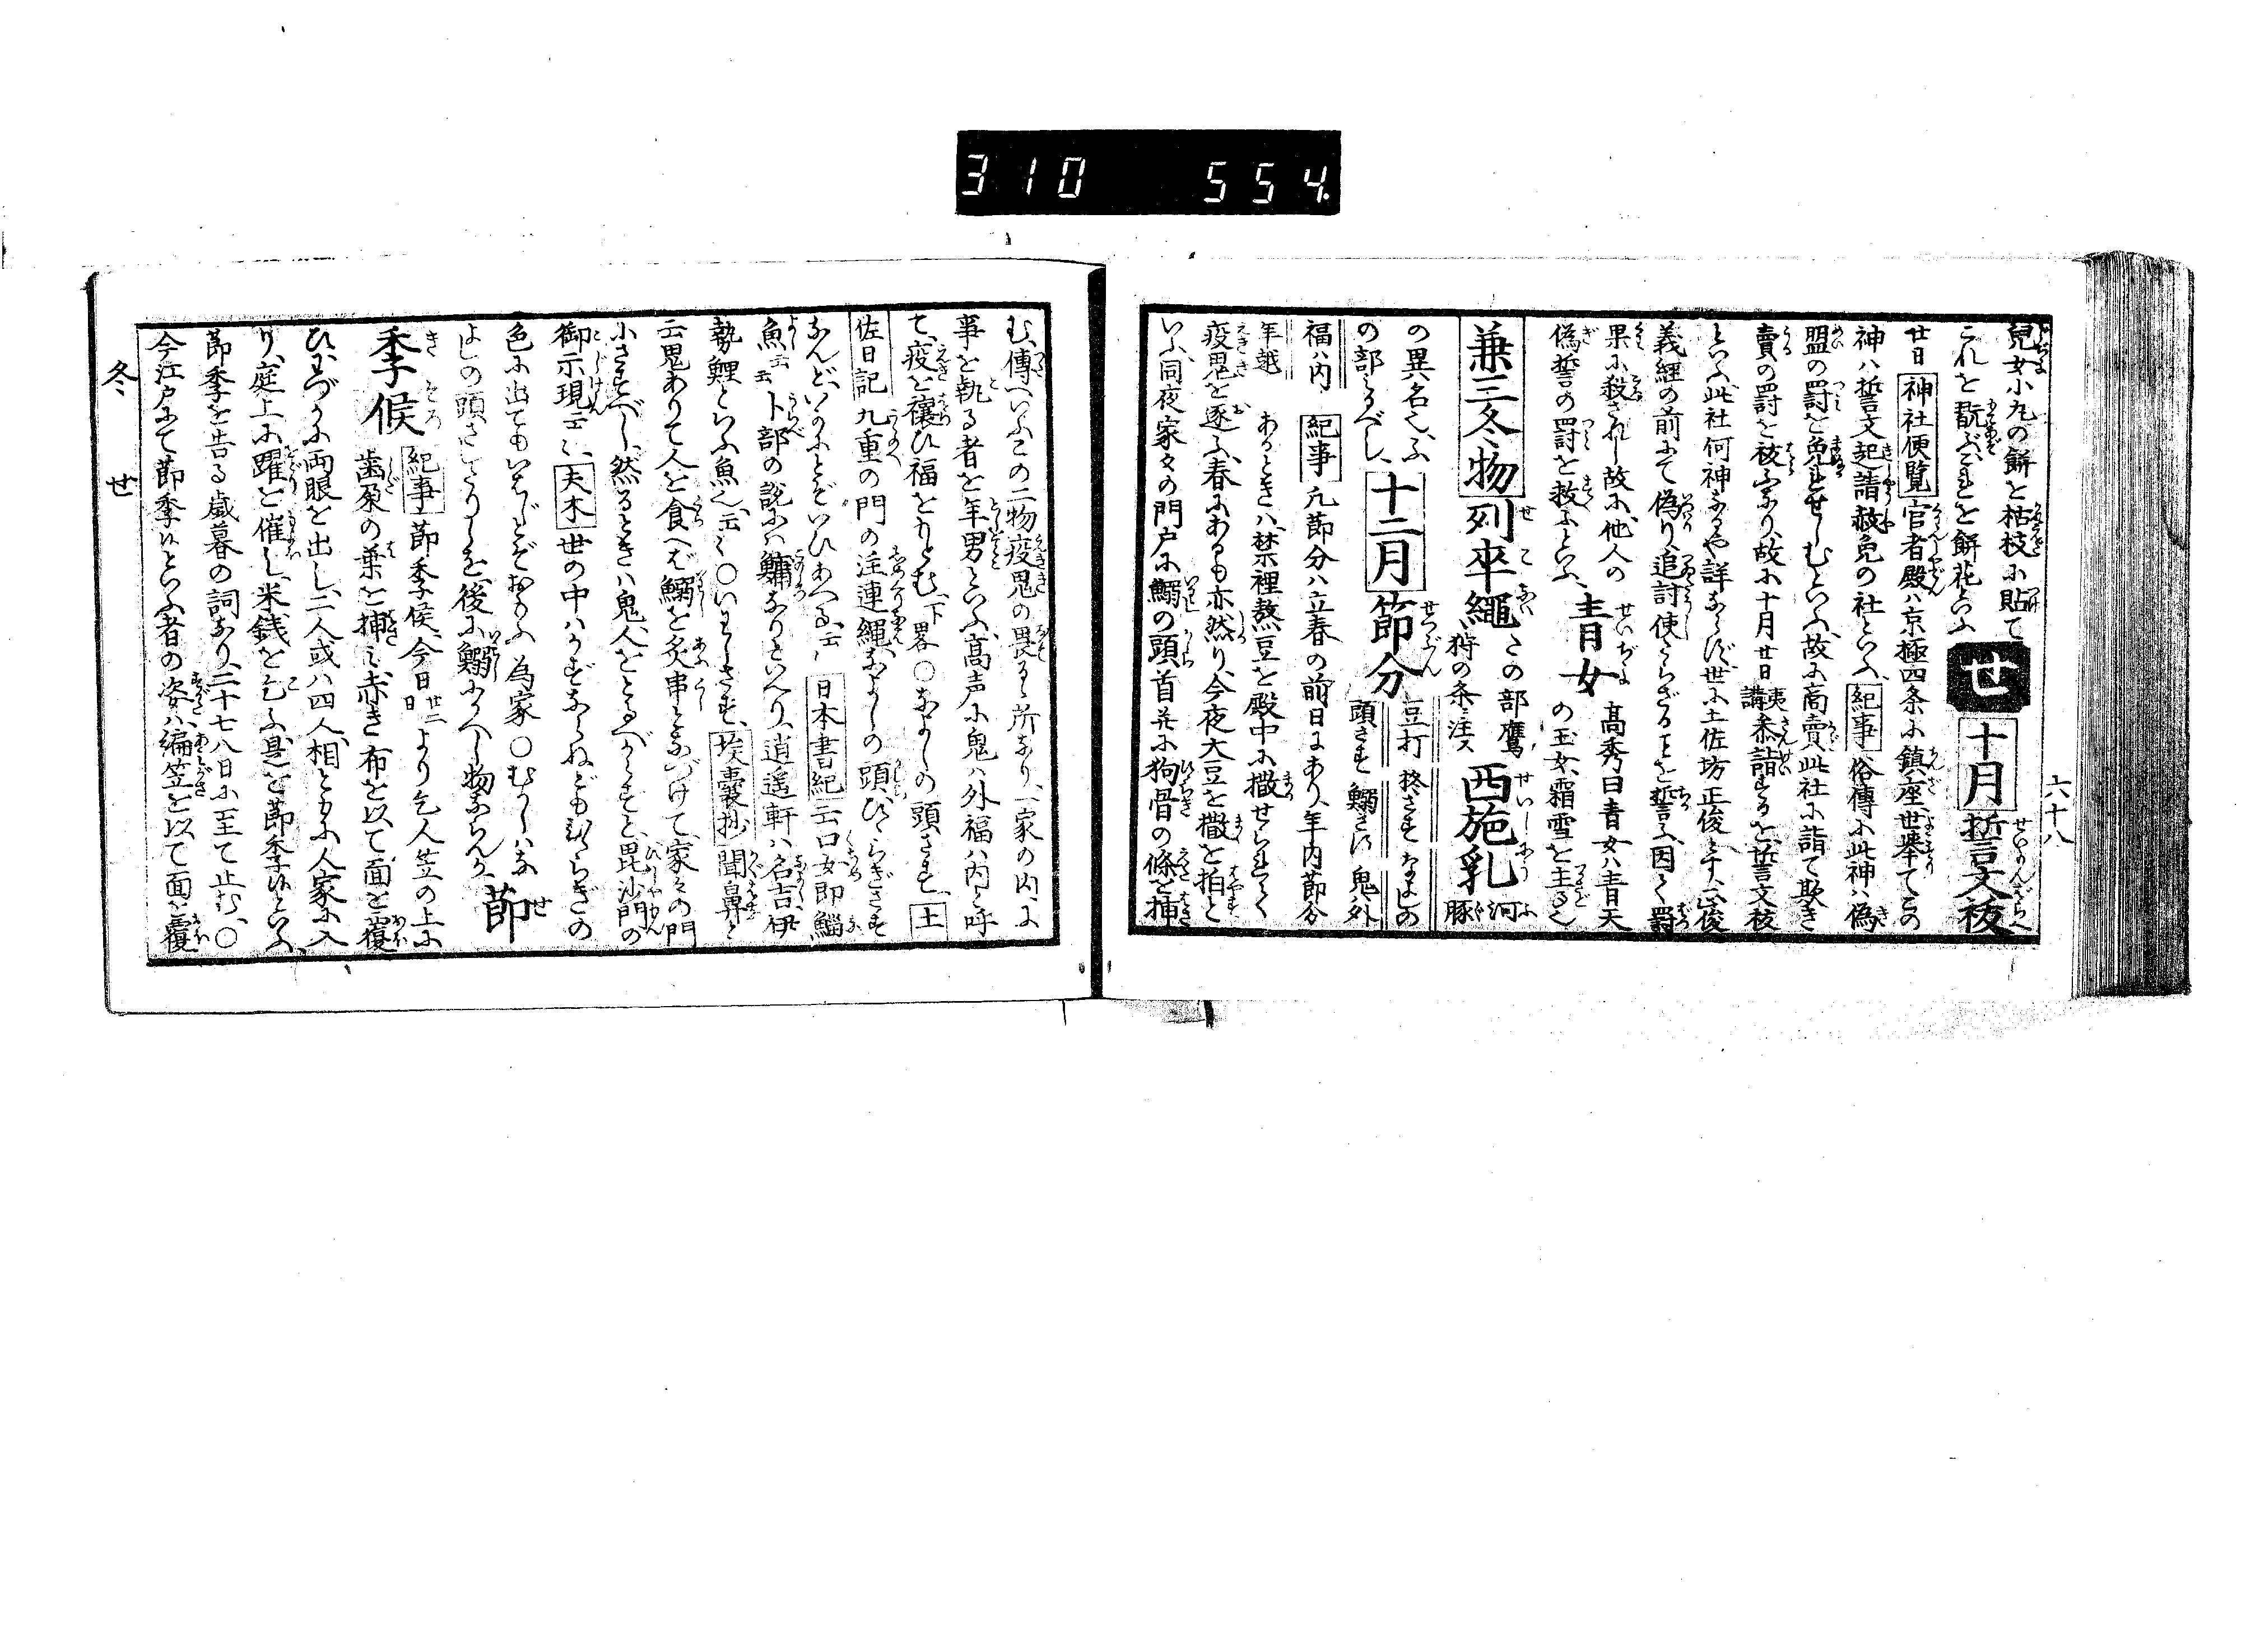 310 554
六十八
兒女小丸の餅を枯枝に貼て
これを翫ぶこれを餅花といふ
せ
十月
誓文祓
廿日神社便覧官者殿ハ京極四条に鎮座世挙てこの
神ハ誓文起請赦免の社といふ紀事俗傳に此神ハ偽
盟の罰を免れせしむといふ故に商賣此社に詣て欺き
賣の罰を祓ふなり故に十月廿日夷講参詣するを誓文祓
といふ此社何神なるや詳ならず世に土佐坊正俊ミす正俊
義経の前にて偽り追討使たらざることを誓ふ因て罰
果に殺されし故に他人の
偽誓の罰を救ふといふ
青女
高秀曰青女ハ青天
の玉女霜雪を主る也
兼三冬物
列卒繩
たの部鷹
狩の条ニ注ス
西施乳
河豚
の異名也ふ
の部ミるべし
十二月
節分
豆打 柊さす なよしの
頭さす 鰯さす 鬼ハ外
福ハ内
年越
紀事凢節分ハ立春の前日にあり年内節分
あるときハ禁裡熬豆を殿中に撒せらる
疫鬼を逐ふ春にあるも亦然り今夜大豆を撒を拍と
いふ同夜家々の門戸に鰯の頭首并に狗骨の條を挿
む傳へいふこの二物疫鬼の畏るゝ所なり一家の内に
事を執る者を年男といふ高声に鬼ハ外福ハ内と呼
て疫を禳ひ福をもとむ下畧○なよしの頭さす土
佐日記九重の門の注連繩なよしの頭ひゝらぎさす
なんどいかにとぞいひあへる云々日本書紀云口女即鯔
魚云云卜部の説にハ鱅なりといへり逍遥軒ハ名吉伊
勢鯉といふ魚也云々○いわしさす埃嚢抄聞鼻と
云鬼ありて人を食へば鰯を炙串となづけて家々の門
にさすべし然るときハ鬼人をとるべからずと毘沙門の
御示現云々夫木世の中ハかずならねどもひゝらぎの
色に出てもいはじとぞおもふ 為家○むかしハな
よしの頭さしたりしを後に鰯にかへし物ならんか
節
季候
紀事節季候今日廿二日より乞人笠の上に
歯朶の葉を挿ミ赤き布を以て面を覆
ひわづかに両眼を出し二人或ハ四人相ともに人家に入
り庭上に躍を催し米銭を乞ふ是を節季候といふ
節季を告る歳暮の詞あり二十七八日に至て止む○
今江戸にて節季候といふ者の姿ハ編笠を以て面を覆
冬 せ